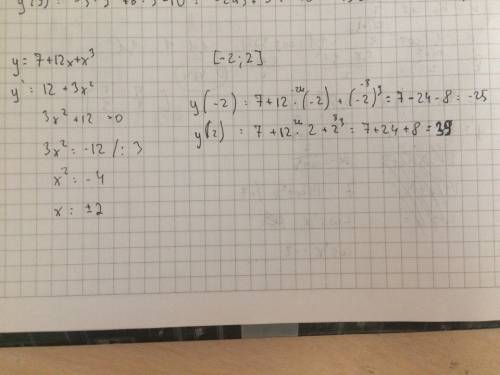 y = 7 + 12x + x³ [-2 ; 2]
y' = 12 + 3x²
3x² + 12 = 0
3x² = -12 /: 3
x² = -4
x = ±2
y(-2) = 7 + 12 · (-2) + (-2)³ = 7 - 24 - 8 = -25
y(2) = 7 + 12 · 2 + 2³ = 7 + 24 + 8 = 39